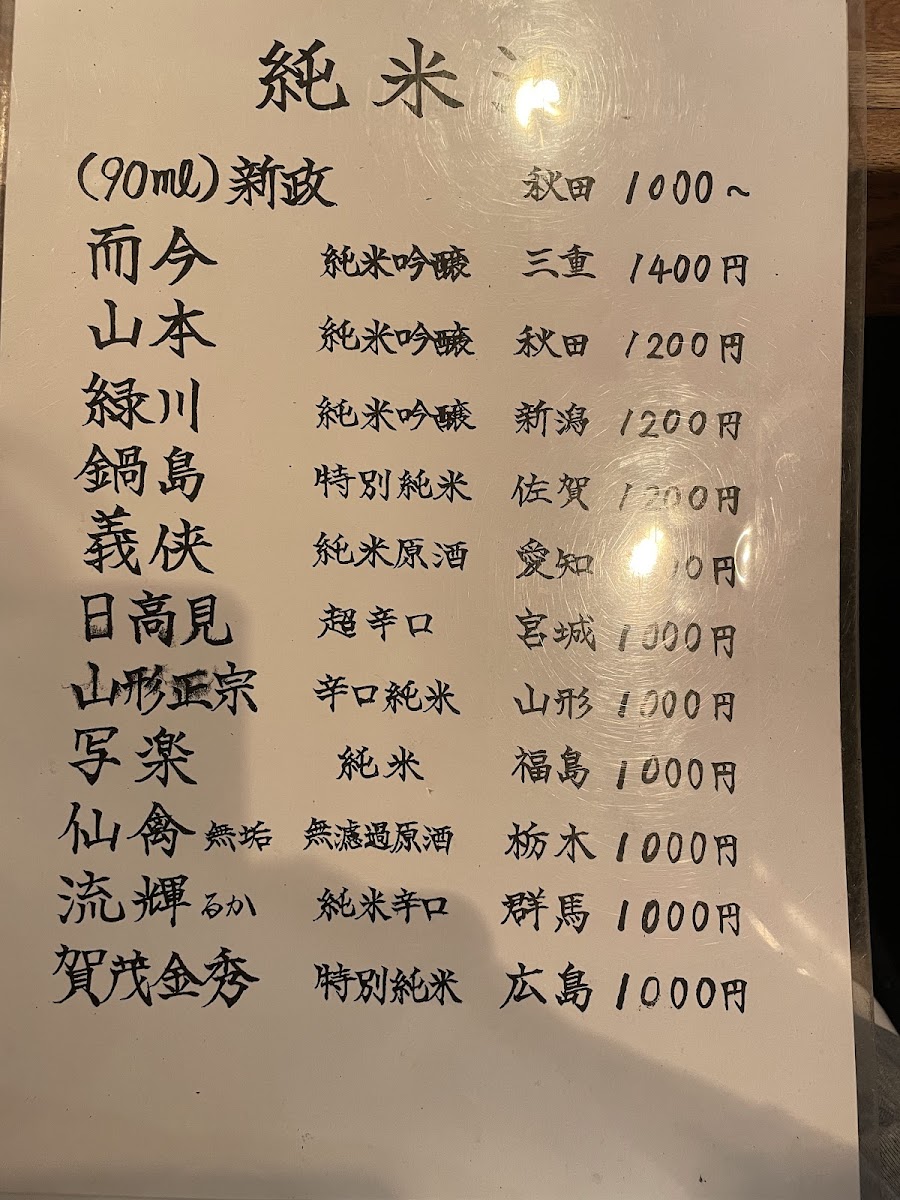 純米
(90ml)新政 秋田 1000～
而今 純米吟醸 三重 1400円
山本 純米吟醸 秋田 1200円
緑川 純米吟醸 新潟 1200円
鍋島 特別純米 佐賀 1200円
義侠 純米原酒 愛知 00円
日高見 超辛口 宮城 1000円
山形正宗 辛口純米 山形 1000円
写楽 純米 福島 1000円
仙禽 無垢 無濾過原酒 栃木 1000円
流輝 るか 純米辛口 群馬 1000円
賀茂金秀 特別純米 広島 1000円